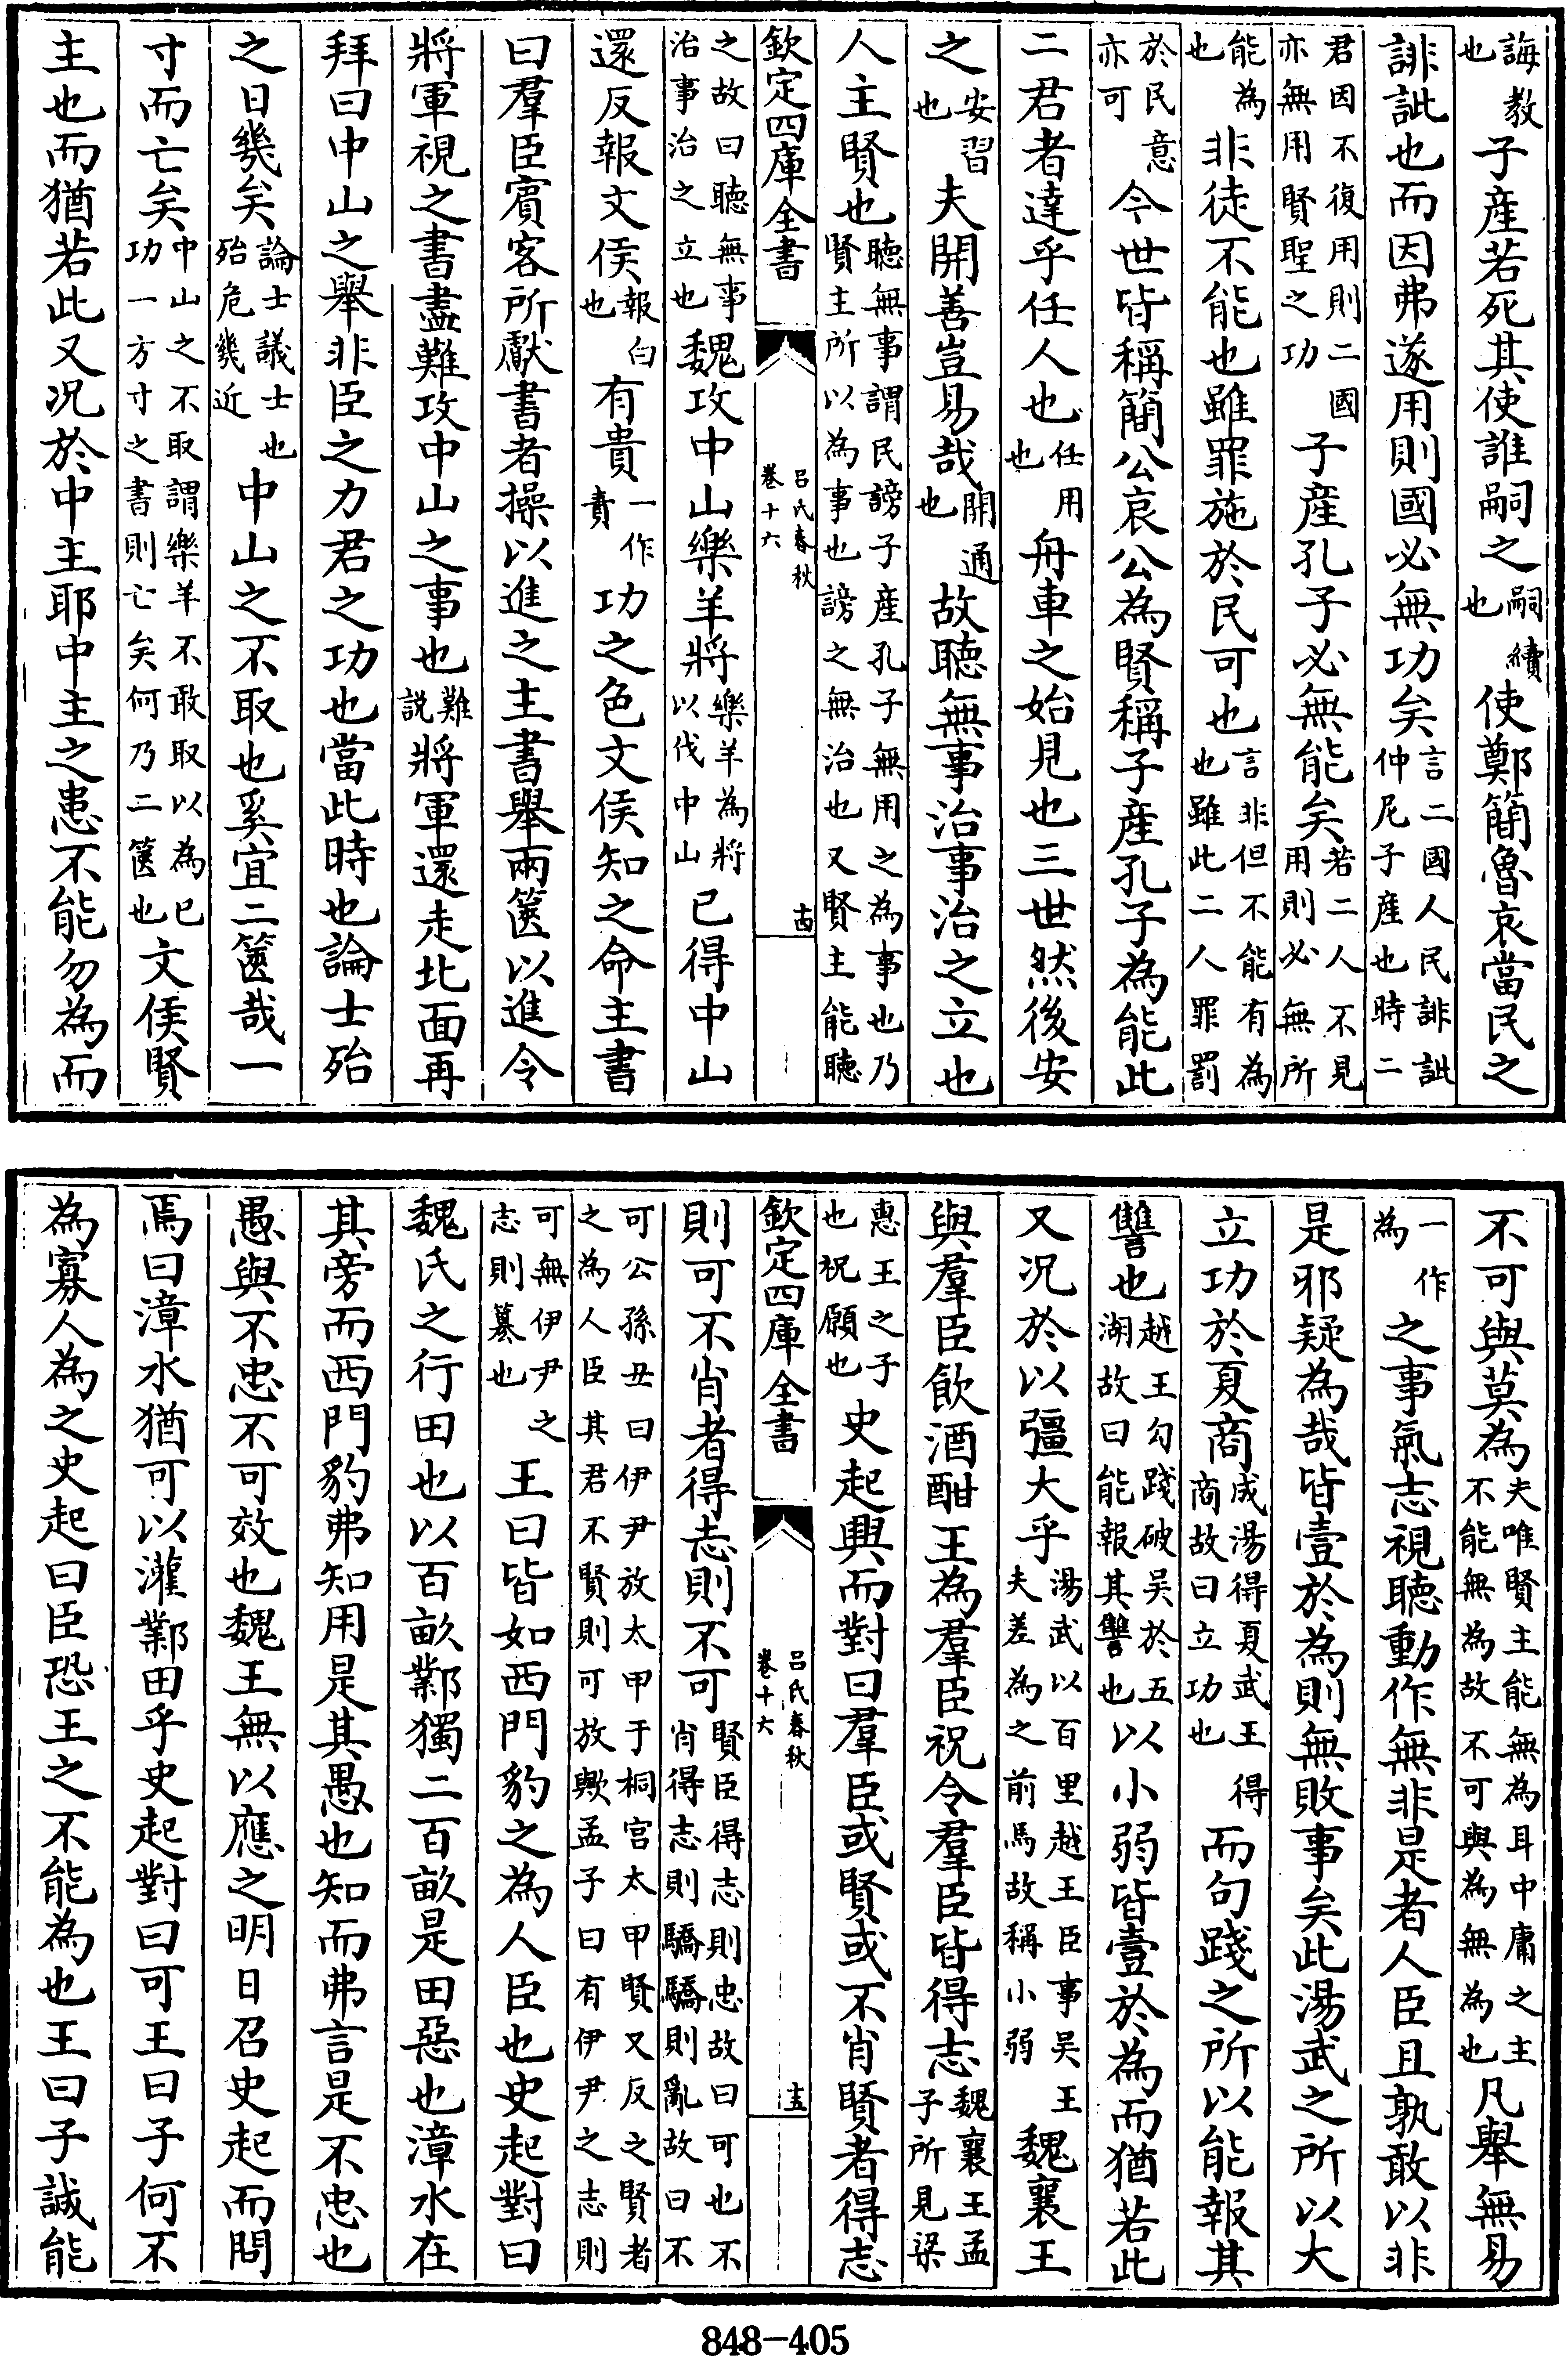 誨教也子産若死其使誰嗣之嗣續也使鄭簡魯哀當民之
誹訿也而因弗遂用則國必無功矣言二國人民誹訿仲尼子産也時二
君因不復用則二國亦無用賢聖之功子産孔子必無能矣若二人不見用則必無所
能為也非徒不能也雖罪施於民可也言非但不能有為也雖此二人罪罰
於民意亦可今世皆稱簡公哀公為賢稱子産孔子為能此
二君者達乎任人也任用也舟車之始見也三世然後安
之安習也夫開善豈易哉開通也故聽無事治事治之立也
人主賢也聽無事謂民謗子産孔子無用之為事也乃賢主所以為事也謗之無治也又賢主能聽
欽定四庫全書 吕氏春秋卷十六 十四
之故曰聽無事治事治之立也魏攻中山樂羊將樂羊為將以伐中山已得中山
還反報文侯報白也有貴一作責功之色文侯知之命主書
曰羣臣賓客所獻書者操以進之主書舉兩篋以進令
將軍視之書盡難攻中山之事也難說將軍還走北面再
拜曰中山之舉非臣之力君之功也當此時也論士殆
之日幾矣論士議士也殆危幾近中山之不取也奚宜二篋哉一
寸而亡矣中山之不取謂樂羊不敢取以為已功一方寸之書則亡矣何乃二篋也文侯賢
主也而猶若此又况於中主耶中主之患不能勿為而
不可與莫為夫唯賢主能無為耳中庸之主不能無為故不可與為無為也凡舉無易
一作為之事氣志視聽動作無非是者人臣且孰敢以非
是邪疑為哉皆壹於為則無敗事矣此湯武之所以大
立功於夏商成湯得夏武王得商故曰立功也而句踐之所以能報其
讐也越王勾踐破吴於五湖故曰能報其讐也以小弱皆壹於為而猶若此
又况於以彊大乎湯武以百里越王臣事吴王夫差為之前馬故稱小弱魏襄王
與羣臣飲酒酣王為羣臣祝令羣臣皆得志魏襄王孟子所見梁
惠王之子也祝願也史起興而對曰羣臣或賢或不肖賢者得志
欽定四庫全書 吕氏春秋卷十六 十五
則可不肖者得志則不可賢臣得志則忠故曰可也不肖得志則驕驕則亂故曰不
可公孫丑曰伊尹放太甲于桐宫太甲賢又反之賢者之為人臣其君不賢則可放歟孟子曰有伊尹之志則
可無伊尹之志則簒也王曰皆如西門豹之為人臣也史起對曰
魏氏之行田也以百畝鄴獨二百畝是田惡也漳水在
其旁而西門豹弗知用是其愚也知而弗言是不忠也
愚與不忠不可效也魏王無以應之明日召史起而問
焉曰漳水猶可以灌鄴田乎史起對曰可王曰子何不
為寡人為之史起曰臣恐王之不能為也王曰子誠能
848-405